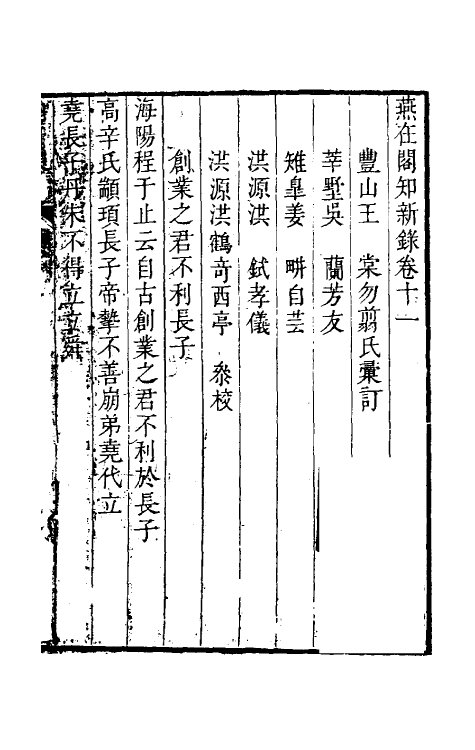 燕在閣知新錄卷十一
豐山王　棠勿翦氏彙訂
莘墅吳　蘭芳友
雉臯姜　畊自芸
洪源洪　鉽孝儀
洪源洪鶴奇西亭　叅校
創業之君不利長子
海陽程于止云自古創業之君不利於長子
高辛氏顓頊長子帝摯不善崩弟堯代立
堯長子丹朱不得立立舜